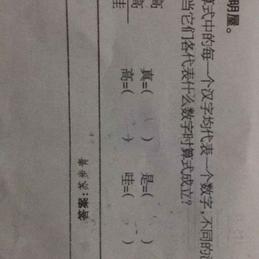 明屋。
算式中的每一个汉字均代表一个数字,不同的
当它们各代表什么数字时算式成立?
高 真=( ) 是=( )
高=( ) 哇=( )
答案:苏步青